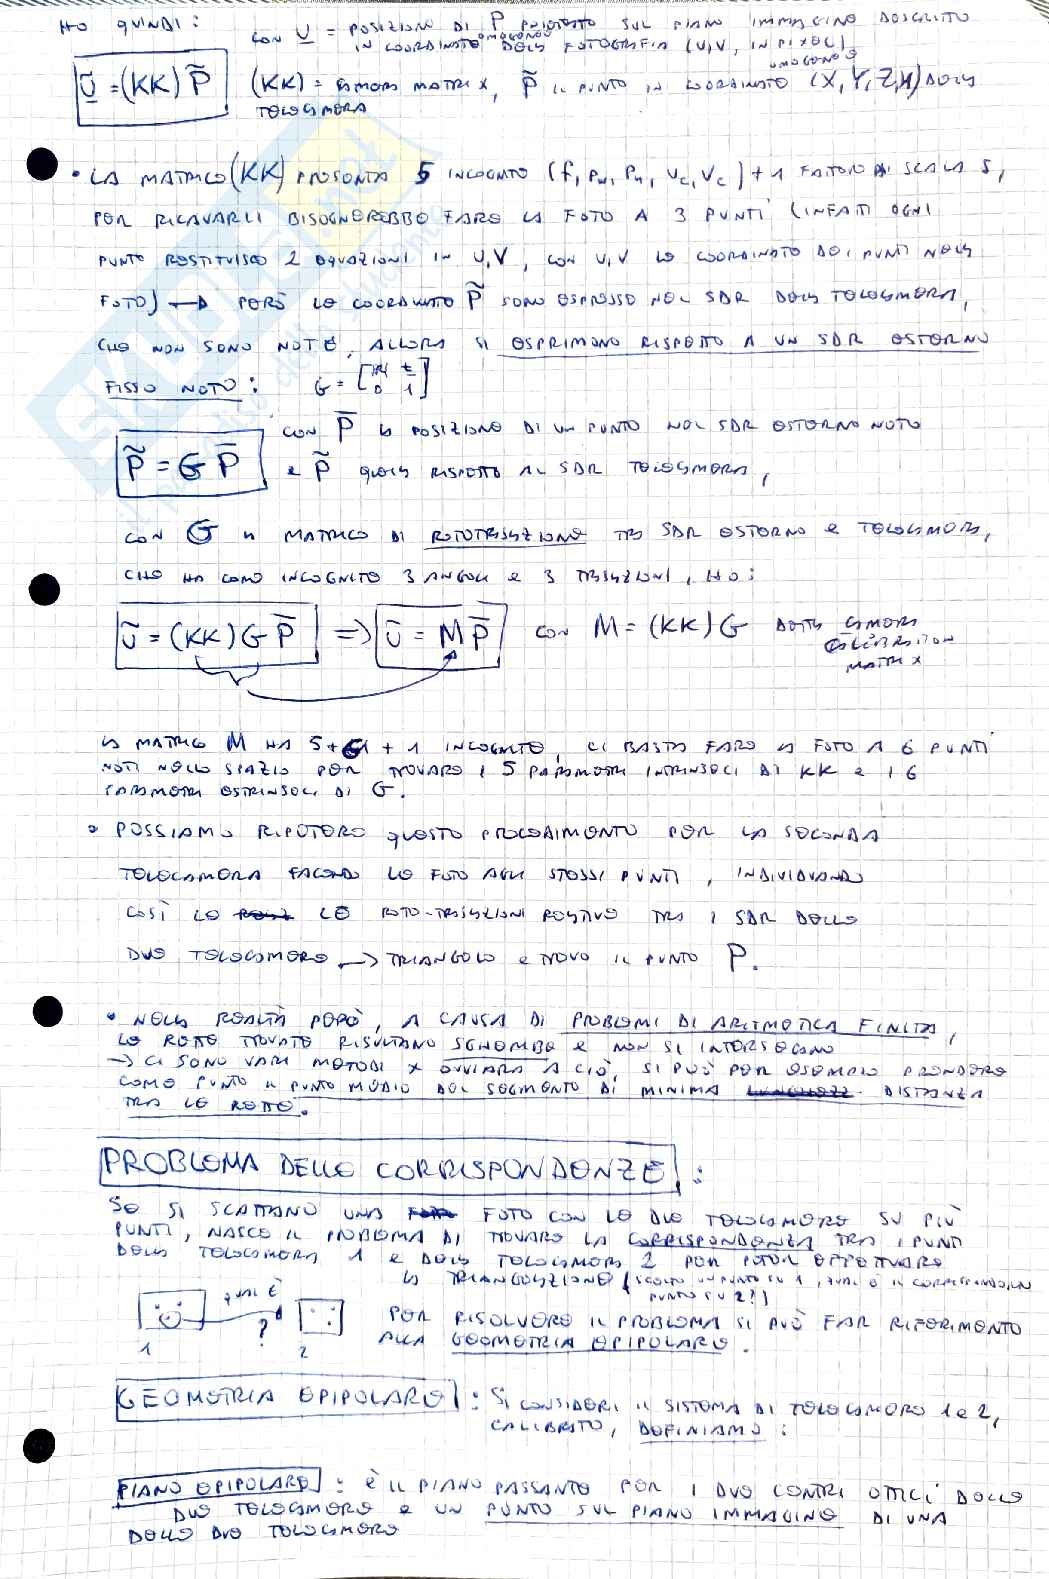 HO QUINDI:
CON U = POSIZIONE DI P PROIETTATO SUL PIANO IMMAGINE DESCRITTO
IN COORDINATE OMOGENEE DELLA FOTOGRAFIA (U,V, IN PIXEL)
Ũ = (KK) P̃ (KK) = CAMERA MATRIX, P̃ IL PUNTO IN COORDINATE OMOGENEE (X,Y,Z,1) DELLA
TELECAMERA
• LA MATRICE (KK) PRESENTA 5 INCOGNITE (f, Pu, Pv, Uc, Vc) + 1 FATTORE DI SCALA S,
PER RICAVARLI BISOGNEREBBE FARE LA FOTO A 3 PUNTI (INFATTI OGNI
PUNTO RESTITUISCE 2 EQUAZIONI IN U,V, CON U,V LE COORDINATE DEI PUNTI NELLA
FOTO) → PERÒ LE COORDINATE P̃ SONO ESPRESSE NEL SDR DELLA TELECAMERA,
CHE NON SONO NOTE, ALLORA SI ESPRIMONO RISPETTO A UN SDR ESTERNO
FISSO NOTO: G = [R t 0 1]
CON P̄ LA POSIZIONE DI UN PUNTO NEL SDR ESTERNO NOTO
P̃ = G P̄ E P̃ QUELLA RISPETTO AL SDR TELECAMERA,
CON G LA MATRICE DI ROTOTRASLAZIONE TRA SDR ESTERNO E TELECAMERA,
CHE HA COME INCOGNITE 3 ANGOLI E 3 TRASLAZIONI, HO:
Ũ = (KK) G P̄ => Ũ = M P̄ CON M = (KK) G DETTA CAMERA
CALIBRATION
MATRIX
LA MATRICE M HA 5+6+1 INCOGNITE, CI BASTA FARE LA FOTO A 6 PUNTI
NOTI NELLO SPAZIO PER TROVARE I 5 PARAMETRI INTRINSECI DI KK E I 6
PARAMETRI ESTRINSECI DI G.
• POSSIAMO RIPETERE QUESTO PROCEDIMENTO PER LA SECONDA
TELECAMERA FACENDO LE FOTO AGLI STESSI PUNTI, INDIVIDUANDO
COSÌ LE LE ROTO-TRASLAZIONI RELATIVE TRA I SDR DELLE
DUE TELECAMERE → TRIANGOLO E TROVO IL PUNTO P.
• NELLA REALTÀ PERÒ, A CAUSA DI PROBLEMI DI ARITMETICA FINITA,
LE RETTE TROVATE RISULTANO SGHEMBE E NON SI INTERSECANO
→ CI SONO VARI METODI X OVVIARE A CIÒ, SI PUÒ PER ESEMPIO PRENDERE
COME PUNTO IL PUNTO MEDIO DEL SEGMENTO DI MINIMA DISTANZA
TRA LE RETTE.
PROBLEMA DELLE CORRISPONDENZE:
SE SI SCATTANO UNA FOTO CON LE DUE TELECAMERE SU PIÙ
PUNTI, NASCE IL PROBLEMA DI TROVARE LA CORRISPONDENZA TRA I PUNTI
DELLA TELECAMERA 1 E DELLA TELECAMERA 2 PER POTER EFFETTUARE
LA TRIANGOLAZIONE (SCELTO UN PUNTO SU 1, QUAL È IL CORRISPONDENTE
PUNTO SU 2?)
QUAL È
?
1 2
PER RISOLVERE IL PROBLEMA SI PUÒ FAR RIFERIMENTO
ALLA GEOMETRIA EPIPOLARE.
GEOMETRIA EPIPOLARE: SI CONSIDERI IL SISTEMA DI TELECAMERE 1 E 2,
CALIBRATO, DEFINIAMO:
PIANO EPIPOLARE: È IL PIANO PASSANTE PER I DUE CENTRI OTTICI DELLE
DUE TELECAMERE E UN PUNTO SUL PIANO IMMAGINE DI UNA
DELLE DUE TELECAMERE